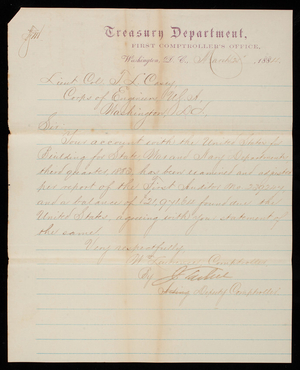 Treasury Department,
FIRST COMPTROLLER'S OFFICE,
Washington, D. C., March 1881.
Lieut. Col. T. L. Casey
Corps of Engineers U.S.A.
Washington, D.C.
Sir:
Your account with the United States for
Building for State War and Navy Departments
has been examined and adjusted
per report of the First Auditor No.
and a balance of found due the
United States, agreeing with your statement of
the same.
Very respectfully,
Comptroller
By
Acting Deputy Comptroller.